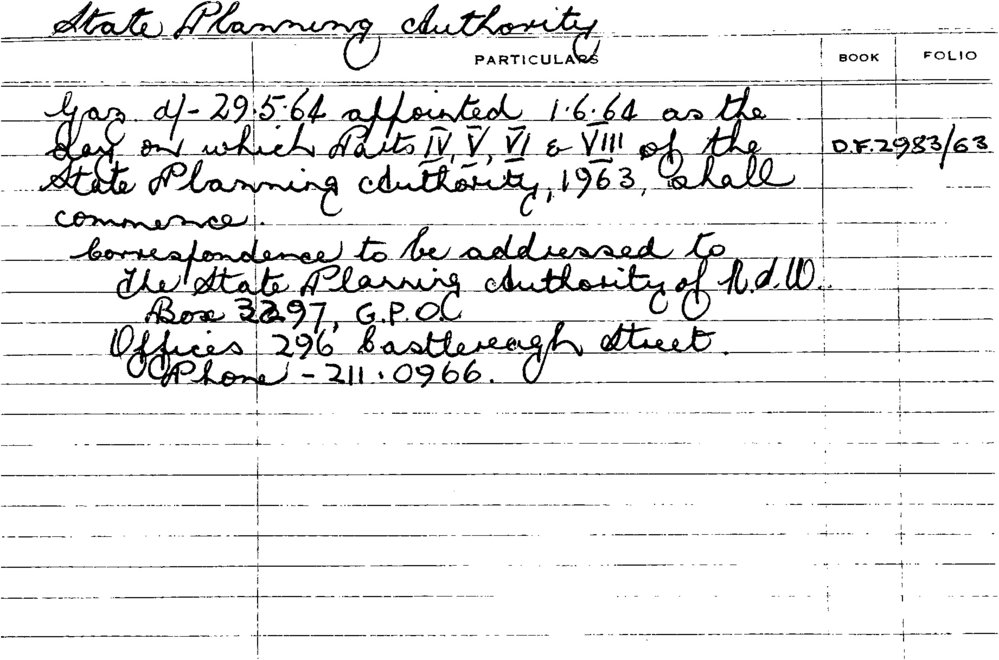 State Planning Authority
PARTICULARS BOOK FOLIO
Gaz d/- 29.5.64 appointed 1.6.64 as the
day on which Parts IV, V, VI & VIII of the D.F.2983/63
State Planning Authority, 1963, shall
commence.
Correspondence to be addressed to
The State Planning Authority of N.S.W.
Box 3297, G.P.O.
Offices 296 Castlereagh Street.
Phone - 211.0966.